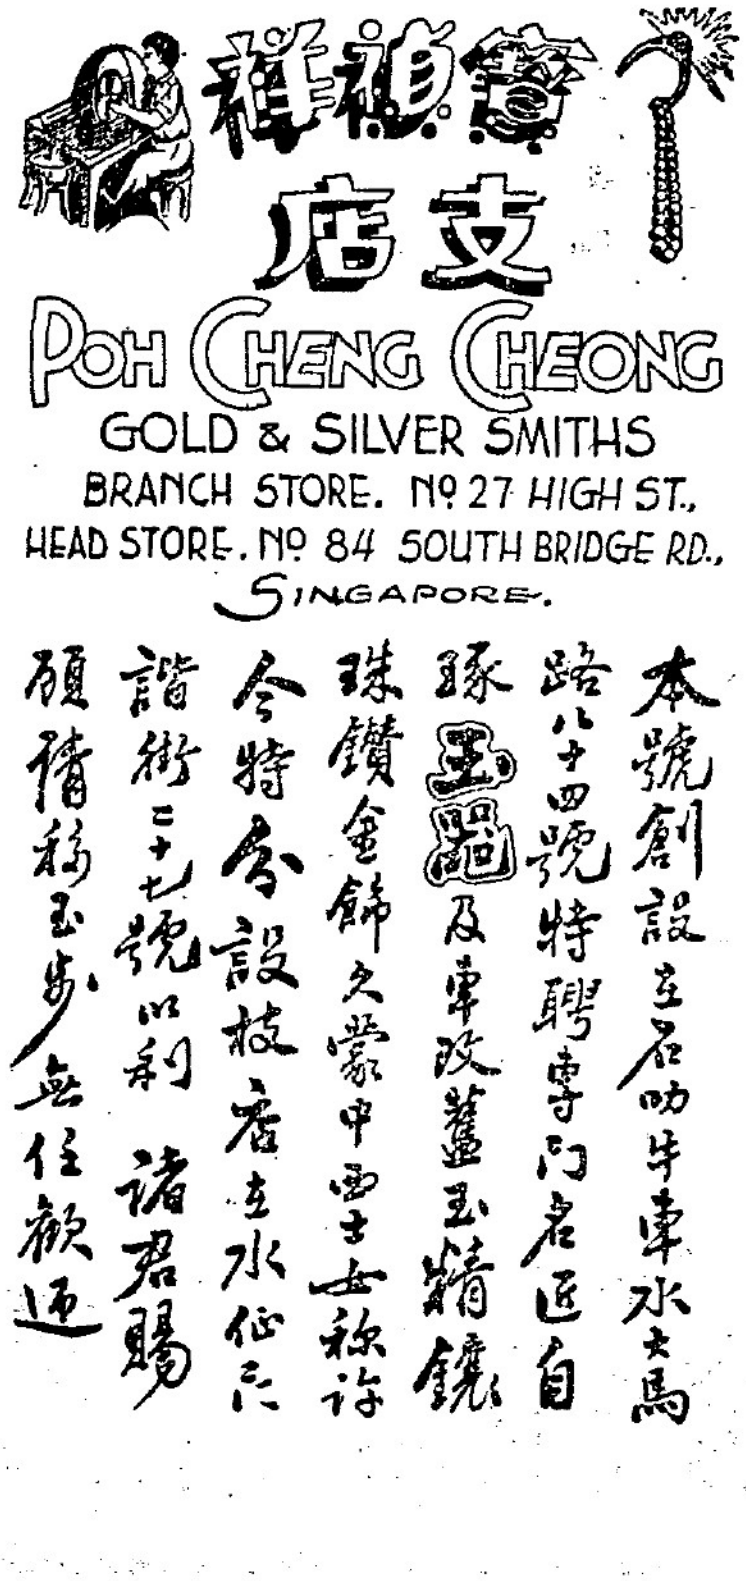 寶禎祥
支店
POH CHENG CHEONG
GOLD & SILVER SMITHS
BRANCH STORE. No 27 HIGH ST.,
HEAD STORE. No 84 SOUTH BRIDGE RD.,
SINGAPORE.
本號創設在石叻牛車水大馬
路八十四號特聘專門名匠自
琢玉器及車改舊玉精鑲
珠鑽金飾久蒙中西士女称許
今特分設枝店在水仙六
諧街二十七號以利 諸君賜
顧請移玉步無任歡迎